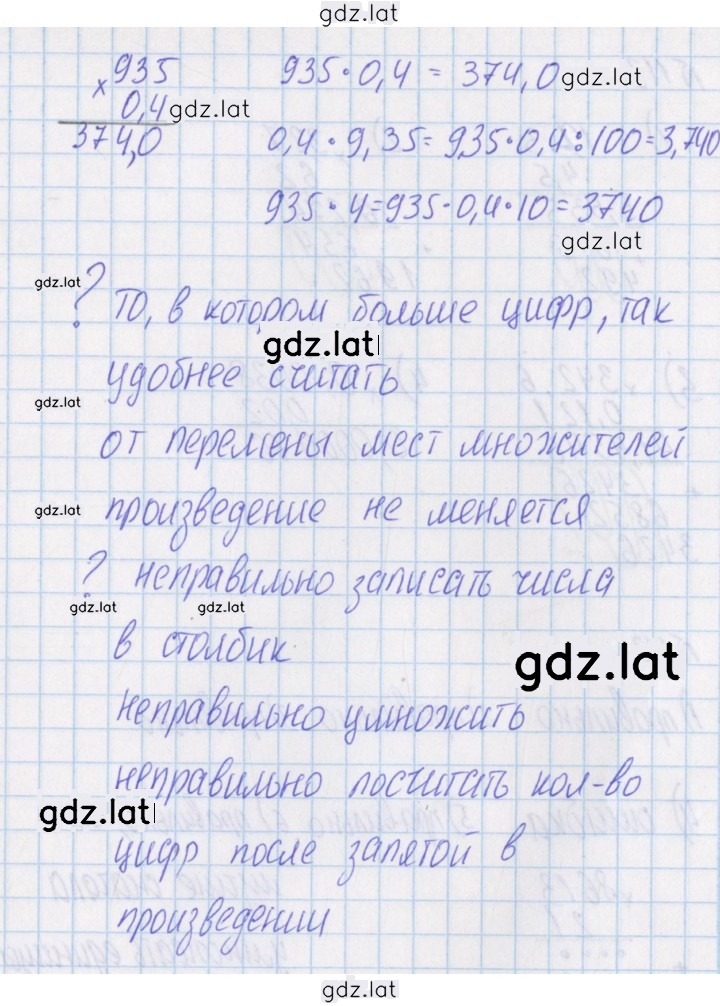 gdz.lat
935 935 · 0,4 = 374,0 gdz.lat
× 0,4 gdz.lat
374,0 0,4 · 9,35 = 935 · 0,4 : 100 = 3,740
935 · 4 = 935 · 0,4 · 10 = 3740
gdz.lat
gdz.lat
? То, в котором больше цифр, так
gdz.lat
удобнее считать
gdz.lat
от перемены мест множителей
gdz.lat произведение не меняется
? неправильно записать числа
gdz.lat gdz.lat
в столбик
gdz.lat
неправильно умножить
неправильно посчитать кол-во
gdz.lat
цифр после запятой в
произведении
gdz.lat